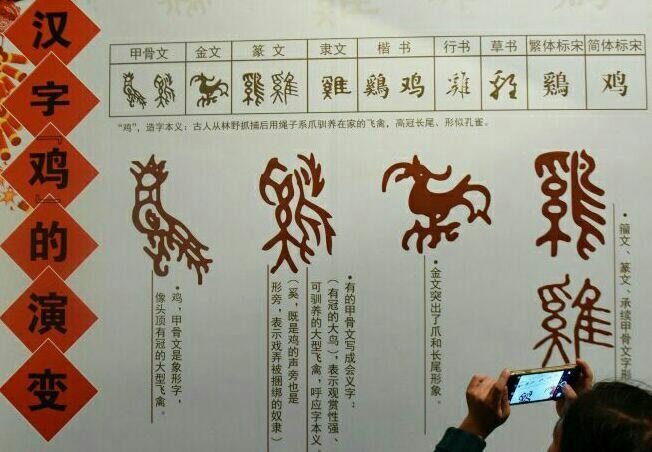 汉字『鸡』的演变
甲骨文 金文 篆文 隶文 楷书 行书 草书 繁体标宋 简体标宋
鷄 雞 雞 鷄 鸡 雞 鷄 鸡
“鸡”，造字本义：古人从林野抓捕后用绳子系爪驯养在家的飞禽，高冠长尾、形似孔雀。
·鸡，甲骨文是象形字，
像头顶有冠的大型飞禽。
·有的甲骨文写成会义字：
（有冠的大鸟），表示观赏性强、
可驯养的大型飞禽，呼应字本义。
（奚，既是鸡的声旁也是
形旁，表示戏弄被捆绑的奴隶）
·金文突出了爪和长尾形象。
鷄
雞
·籀文、篆文、承续甲骨文字形